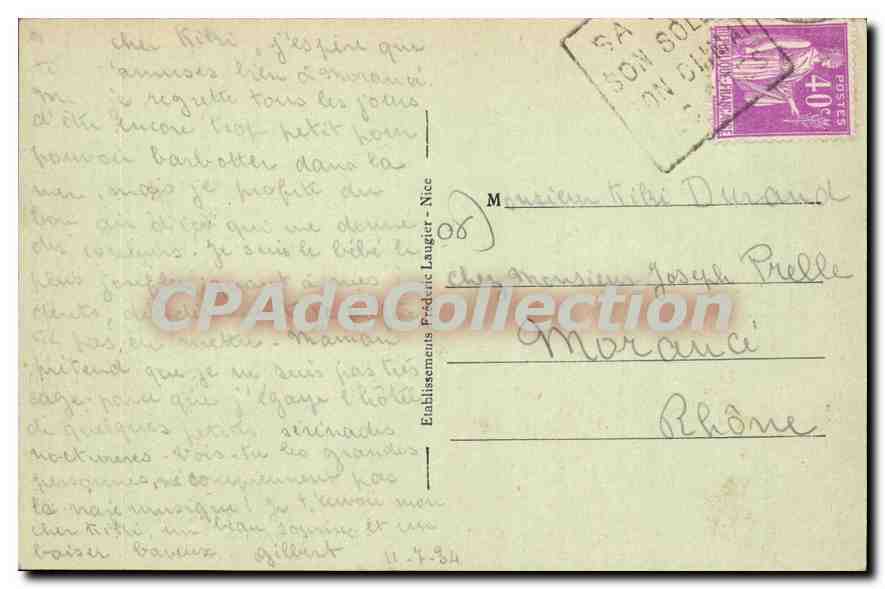 cher Kiki, j'espère que
t' amuses bien à Morancé.
je regrette tous les jours
d'être encore trop petit pour
pouvoir barbotter dans la
mer, mais je profite du
bon air d'ici qui me donne
des couleurs. Je suis le bébé le
plus
dents
Maman
prétend que je ne suis pas très
sage parce que j'égaye l'hôtel
de quelques petites serenades
nocturnes. Vois-tu les grandes
personnes ne comprennent pas
la vraie musique! Je t'envoie mon
cher Kiki, un beau sourire et un
baiser baveux. Gilbert
11-7-34
Etablissements Fréderic Laugier - Nice
SA
SON SOLEIL
SON CLIMAT
POSTES
40 C
REPUBLIQUE FRANCAISE
Monsieur Kiki Durand
chez Monsieur Joseph Prelle
Morancé
Rhône
CPAdeCollection.com